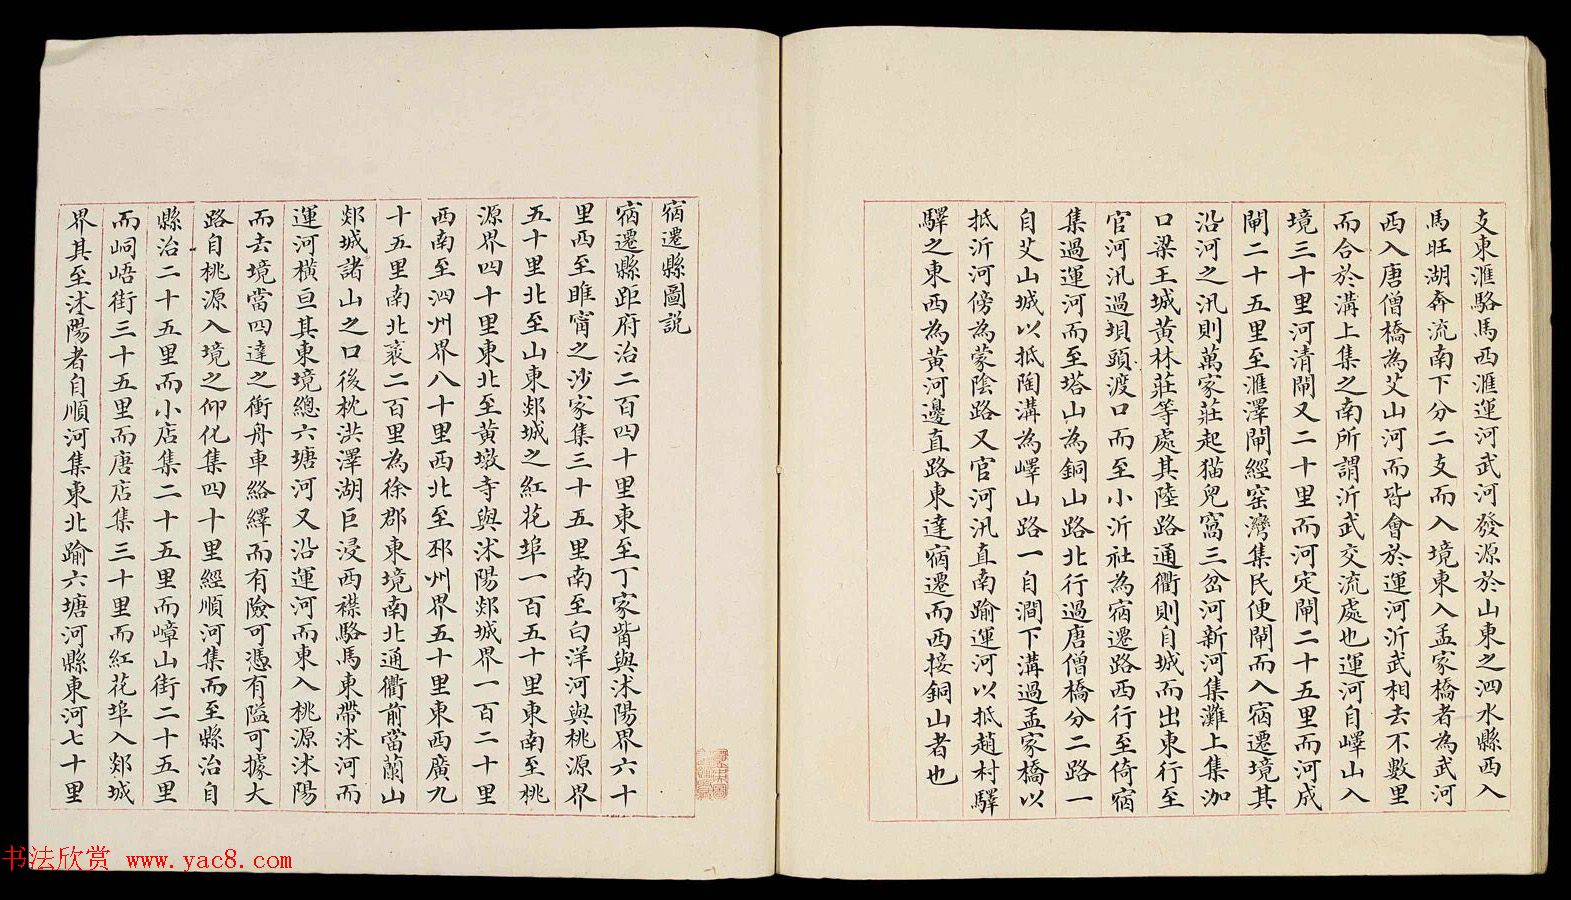 支東滙駱馬西滙運河武河發源於山東之泗水縣西入
馬旺湖奔流南下分二支而入境東入孟家橋者為武河
西入唐僧橋為艾山河而皆會於運河沂武相去不數里
而合於溝上集之南所謂沂武交流處也運河自嶧山入
境三十里河清閘又二十里而河定閘二十五里而河成
閘二十五里至滙澤閘經窑灣集民便閘而入宿遷境其
沿河之汛則萬家莊起猫兒窩三岔河新河集灘上集泇
口梁王城黃林莊等處其陸路通衢則自城而出東行至
官河汛過垻頭渡口而至小沂社為宿遷路西行至倚宿
集過運河而至塔山為銅山路北行過唐僧橋分二路一
自艾山城以抵陶溝為嶧山路一自澗下溝過孟家橋以
抵沂河傍為蒙陰路又官河汛直南踰運河以抵趙村驛
驛之東西為黃河邊直路東達宿遷而西接銅山者也
宿遷縣圖説
宿遷縣距府治二百四十里東至丁家嘴與沭陽界六十
里西至睢甯之沙家集三十五里南至白洋河與桃源界
五十里北至山東郯城之紅花埠一百五十里東南至桃
源界四十里東北至黃墩寺與沭陽郯城界一百二十里
西南至泗州界八十里西北至邳州界五十里東西廣九
十五里南北袤二百里為徐郡東境南北通衢前當蘭山
郯城諸山之口後枕洪澤湖巨浸西襟駱馬東帶沭河而
運河橫亘其東境總六塘河又沿運河而東入桃源沭陽
而去境當四達之衝舟車絡繹而有險可憑有隘可據大
路自桃源入境之仰化集四十里經順河集而至縣治自
縣治二十五里而小店集二十五里而嶂山街二十五里
而峒峿街三十五里而唐店集三十里而紅花埠入郯城
界其至沭陽者自順河集東北踰六塘河縣東河七十里
书法欣赏 www.yac8.com